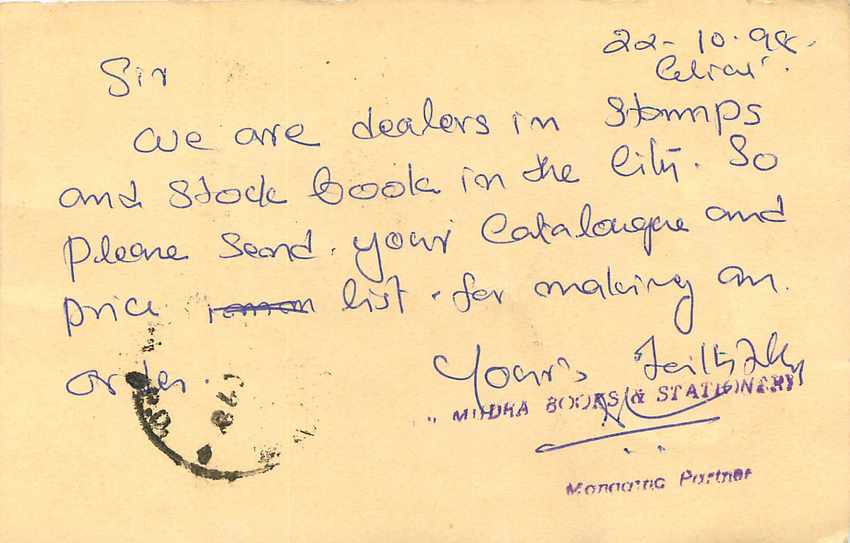 22-10.98.
Sir
we are dealers in Stamps
and Stock book in the City. So
please Send. your Catalougue and
price list. for making an.
order.
Your's faithfully
BOOKS & STATIONERY
Managing Partner